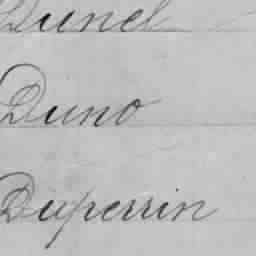 Dunel
Duno
Duperrin